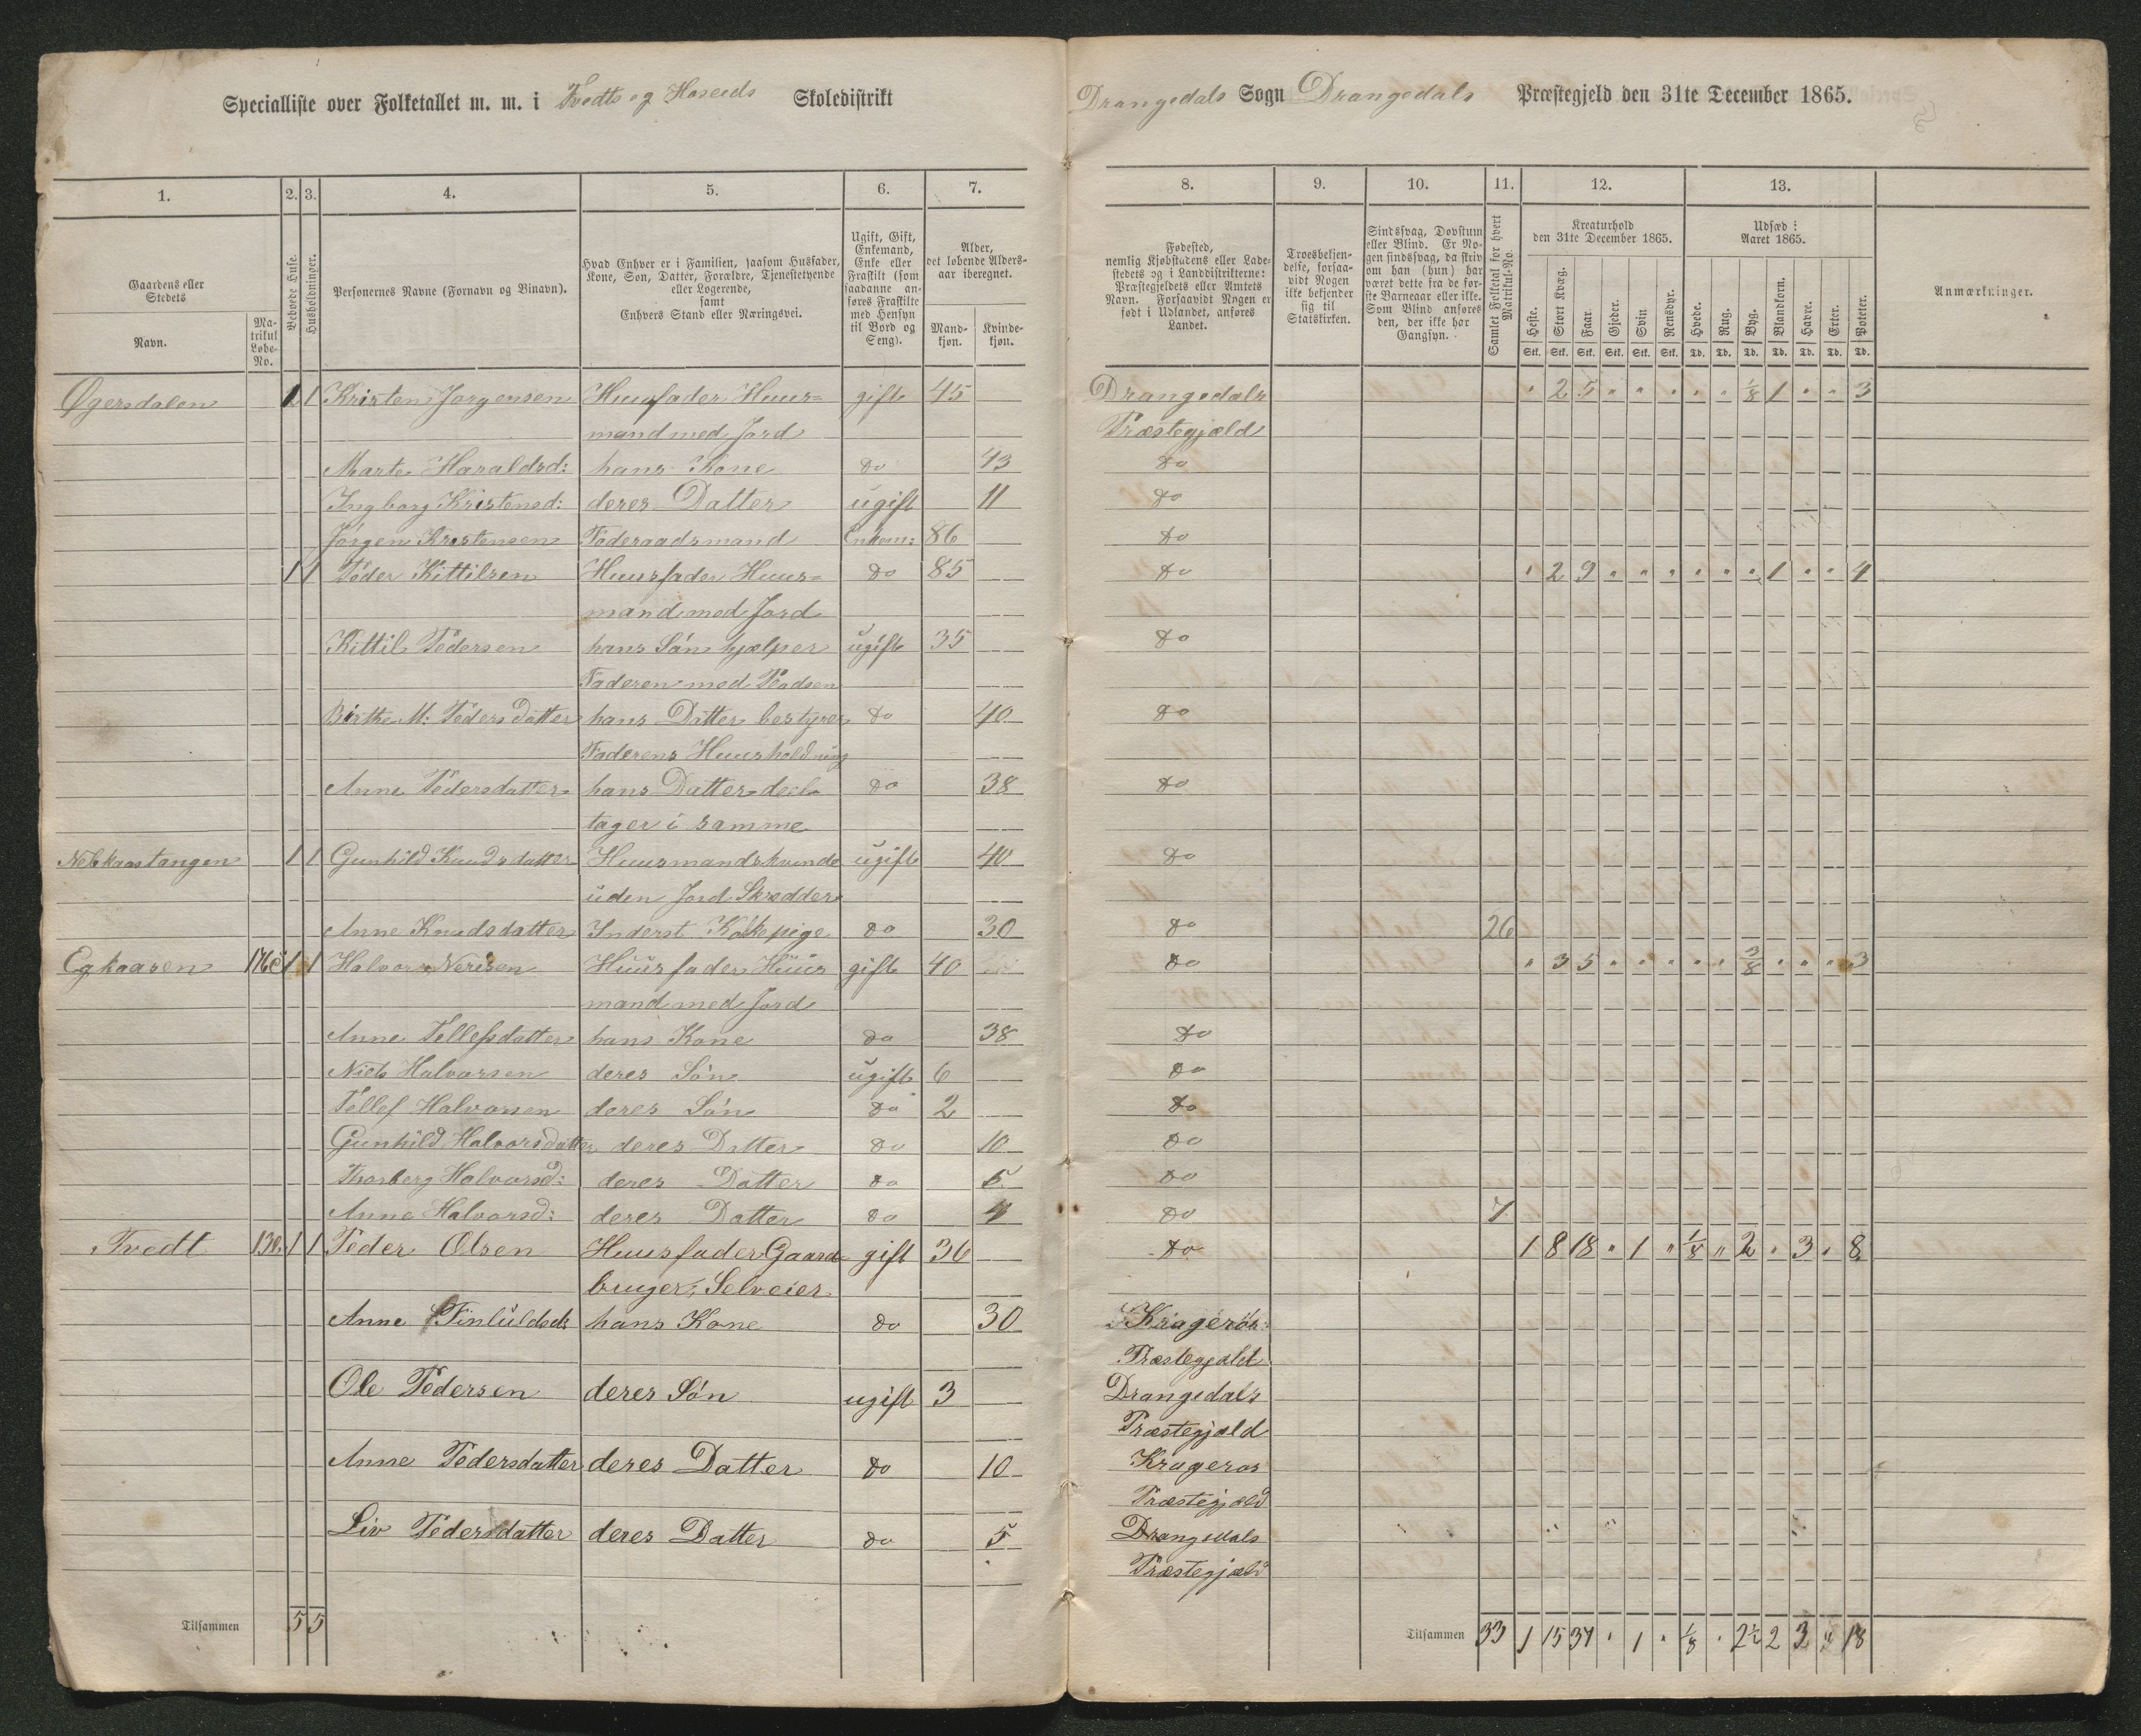 Specialliste over Folketallet m. m. i Tvedts og Hoseids Skoledistrikt
Drangedals Sogn Drangedals Præstegjeld den 31te December 1865.
1. 2. 3. 4. 5. 6. 7. 8. 9. 10. 11. 12. 13.
Gaardens eller Stedets
Navn.
Matrikul Løbe-No.
Beboede Huse.
Husholdninger.
Personernes Navne (Fornavn og Binavn).
Hvad Enhver er i Familien, saasom Husfader, Kone, Søn, Datter, Forældre, Tjenestetyende eller Logerende, samt Enhvers Stand eller Næringsvei.
Ugift, Gift, Enkemand, Enke eller Fraskilt (som saadanne anføres Fraskilte med Hensyn til Bord og Seng).
Alder, det løbende Aldersaar iberegnet.
Mandkjøn. Kvindekjøn.
Fødested, nemlig Kjøbstadens eller Ladestedets og i Landdistrikterne: Præstegjeldets eller Amtets Navn. Forsaavidt Nogen er født i Udlandet, anføres Landet.
Troesbekjendelse, forsaavidt Nogen ikke bekjender sig til Statskirken.
Sindssvag, Døvstum eller Blind. Er Nogen sindssvag, da skriv om han (hun) har været dette fra de første Barneaar eller ille. Som Blind anføres den, der ikke har Gangsyn.
Samlet Folketal for hvert Matrikul-No.
Kreaturhold den 31te December 1865.
Heste. Stort Kvæg. Faar. Gjeder. Svin Rensdyr.
Stk. Stk. Stk. Stk. Stk. Stk.
Udsæd i Aaret 1865.
Hvede. Rug. Byg. Blandkorn. Havre. Erter. Poteter.
Td. Td. Td. Td. Td. Td. Td.
Anmærkninger.
Øgersdalen 1 1 Kristen Jørgensen Huusfader Huus= gift 45 Drangedals " 2 5 " " " " " 1/8 1 " " 3
mand med Jord Præstegjæld
Marte Haraldsd: hans Kone do 43 do
Ingborg Kristensd: deres Datter ugift 11 do
Jørgen Kristensen Føderaadsmand Enkem: 86 do
1 1 Peder Kittilsen Huusfader Huus= do 85 do " 2 9 " " " " " " 1 " " 4
mand med Jord
Kittil Pedersen hans Søn hjælper ugift 35 do
Faderen med Pladsen
Birthe M: Pedersdatter hans Datter bestyrer do 40 do
Faderens Huusholdning
Anne Pedersdatter hans Datter deel do 38 do
tager i samme
Nebkaastangen 1 1 Gunhild Knudsdatter Huusmandskvinde ugift 40 do
uden Jord Skredder
Anne Knudsdatter Inderst Kokkepige do 30 do 26
Egkaasen 1 1 Halvor Nerisen Huusfader Huus gift 40 do " 3 5 " " " " " 3/8 " " " 3
mand med Jord
Anne Tellefsdatter hans Kone do 38 do
Niels Halvorsen deres Søn ugift 6 do
Tellef Halvorsen deres Søn do 2 do
Gunhild Halvorsdatter deres Datter do 10 do
Thorberg Halvorsd: deres Datter do 5 do
Anne Halvorsd: deres Datter do 4 do 7
Tvedt 130 1 1 Peder Olsen Huusfader Gaard gift 36 do 1 8 18 " 1 " 1/8 " 2 " 3 " 8
bruger, Selveier
Anne hans Kone do 30 Kragerøs
Præstegjæld
Ole Pedersen deres Søn ugift 3 Drangedals
Præstegjæld
Anne Pedersdatter deres Datter do 10 Kragerøs
Præstegjæld
Liv Pedersdatter deres Datter do 5 Drangedals
Præstegjæld
Tilsammen 5 5 Tilsammen 33 1 15 37 " 1 " 1/8 " 2 1/2 2 3 " 18